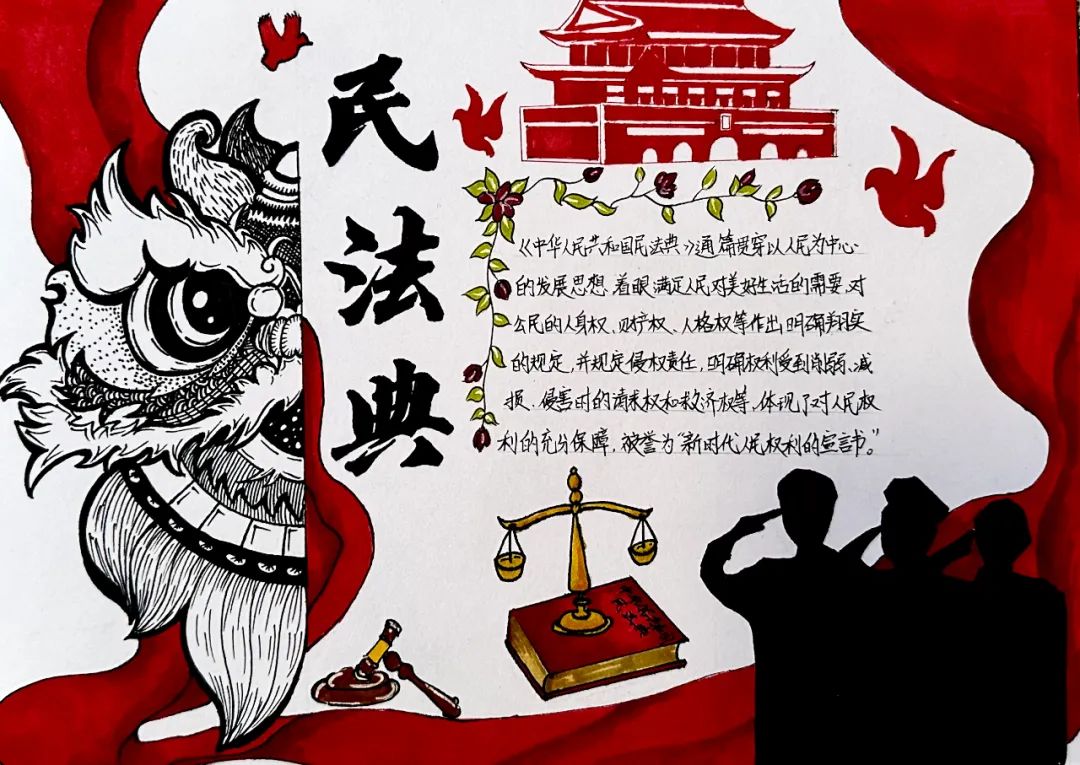 民法典
《中华人民共和国民法典》通篇贯穿以人民为中心
的发展思想，着眼满足人民对美好生活的需要，对
公民的人身权、财产权、人格权等作出明确翔实
的规定，并规定侵权责任，明确权利受到削弱、减
损、侵害时的请求权和救济权等，体现了对人民权
利的充分保障，被誉为“新时代人民权利的宣言书。”